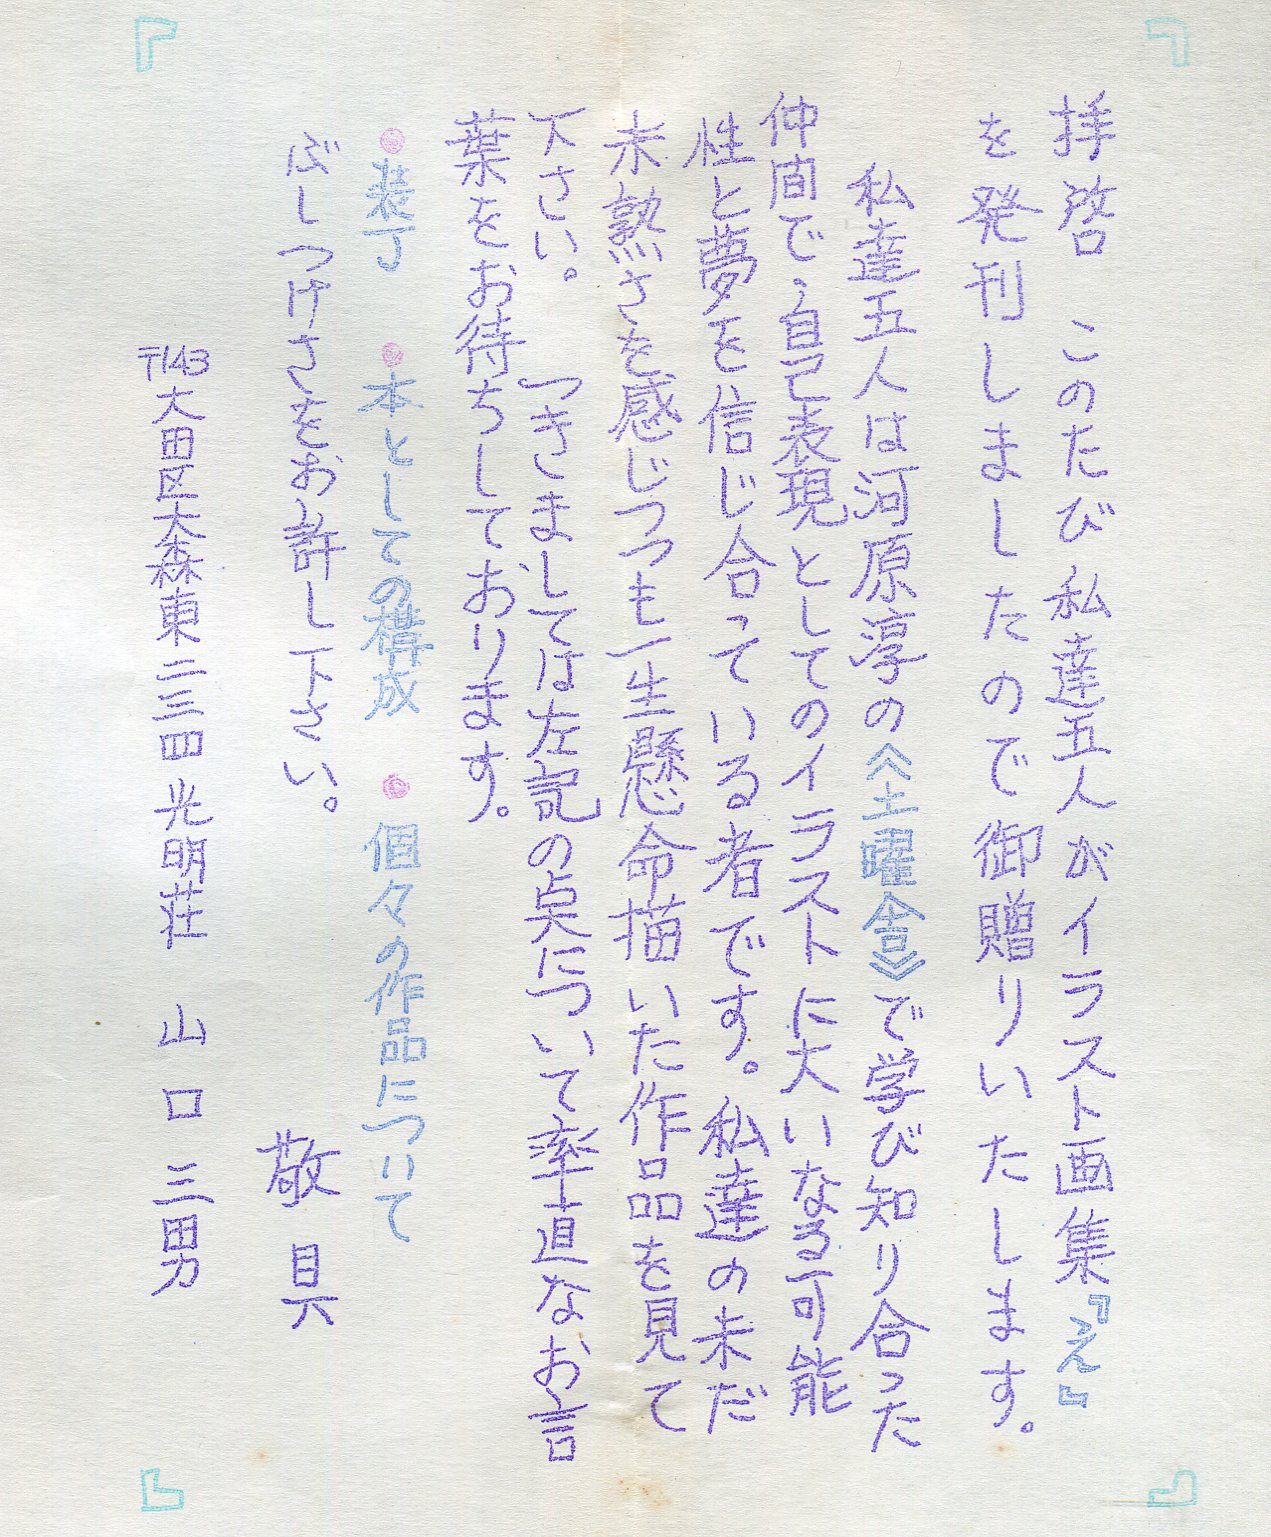 拝啓　このたび私達五人がイラスト画集『え』
を発刊しましたので御贈りいたします。
私達五人は河原淳の《土曜舎》で学び知り合った
仲間で、自己表現としてのイラストに大いなる可能
性と夢を信じ合っている者です。私達の未だ
未熟さを感じつつも一生懸命描いた作品を見て
下さい。　つきましては左記の点について率直なお言
葉をお待ちしております。
●装丁　●本としての構成　●個々の作品について
ぶしつけさをお許し下さい。
敬具
〒143大田区大森東二三四光明荘　山口三男